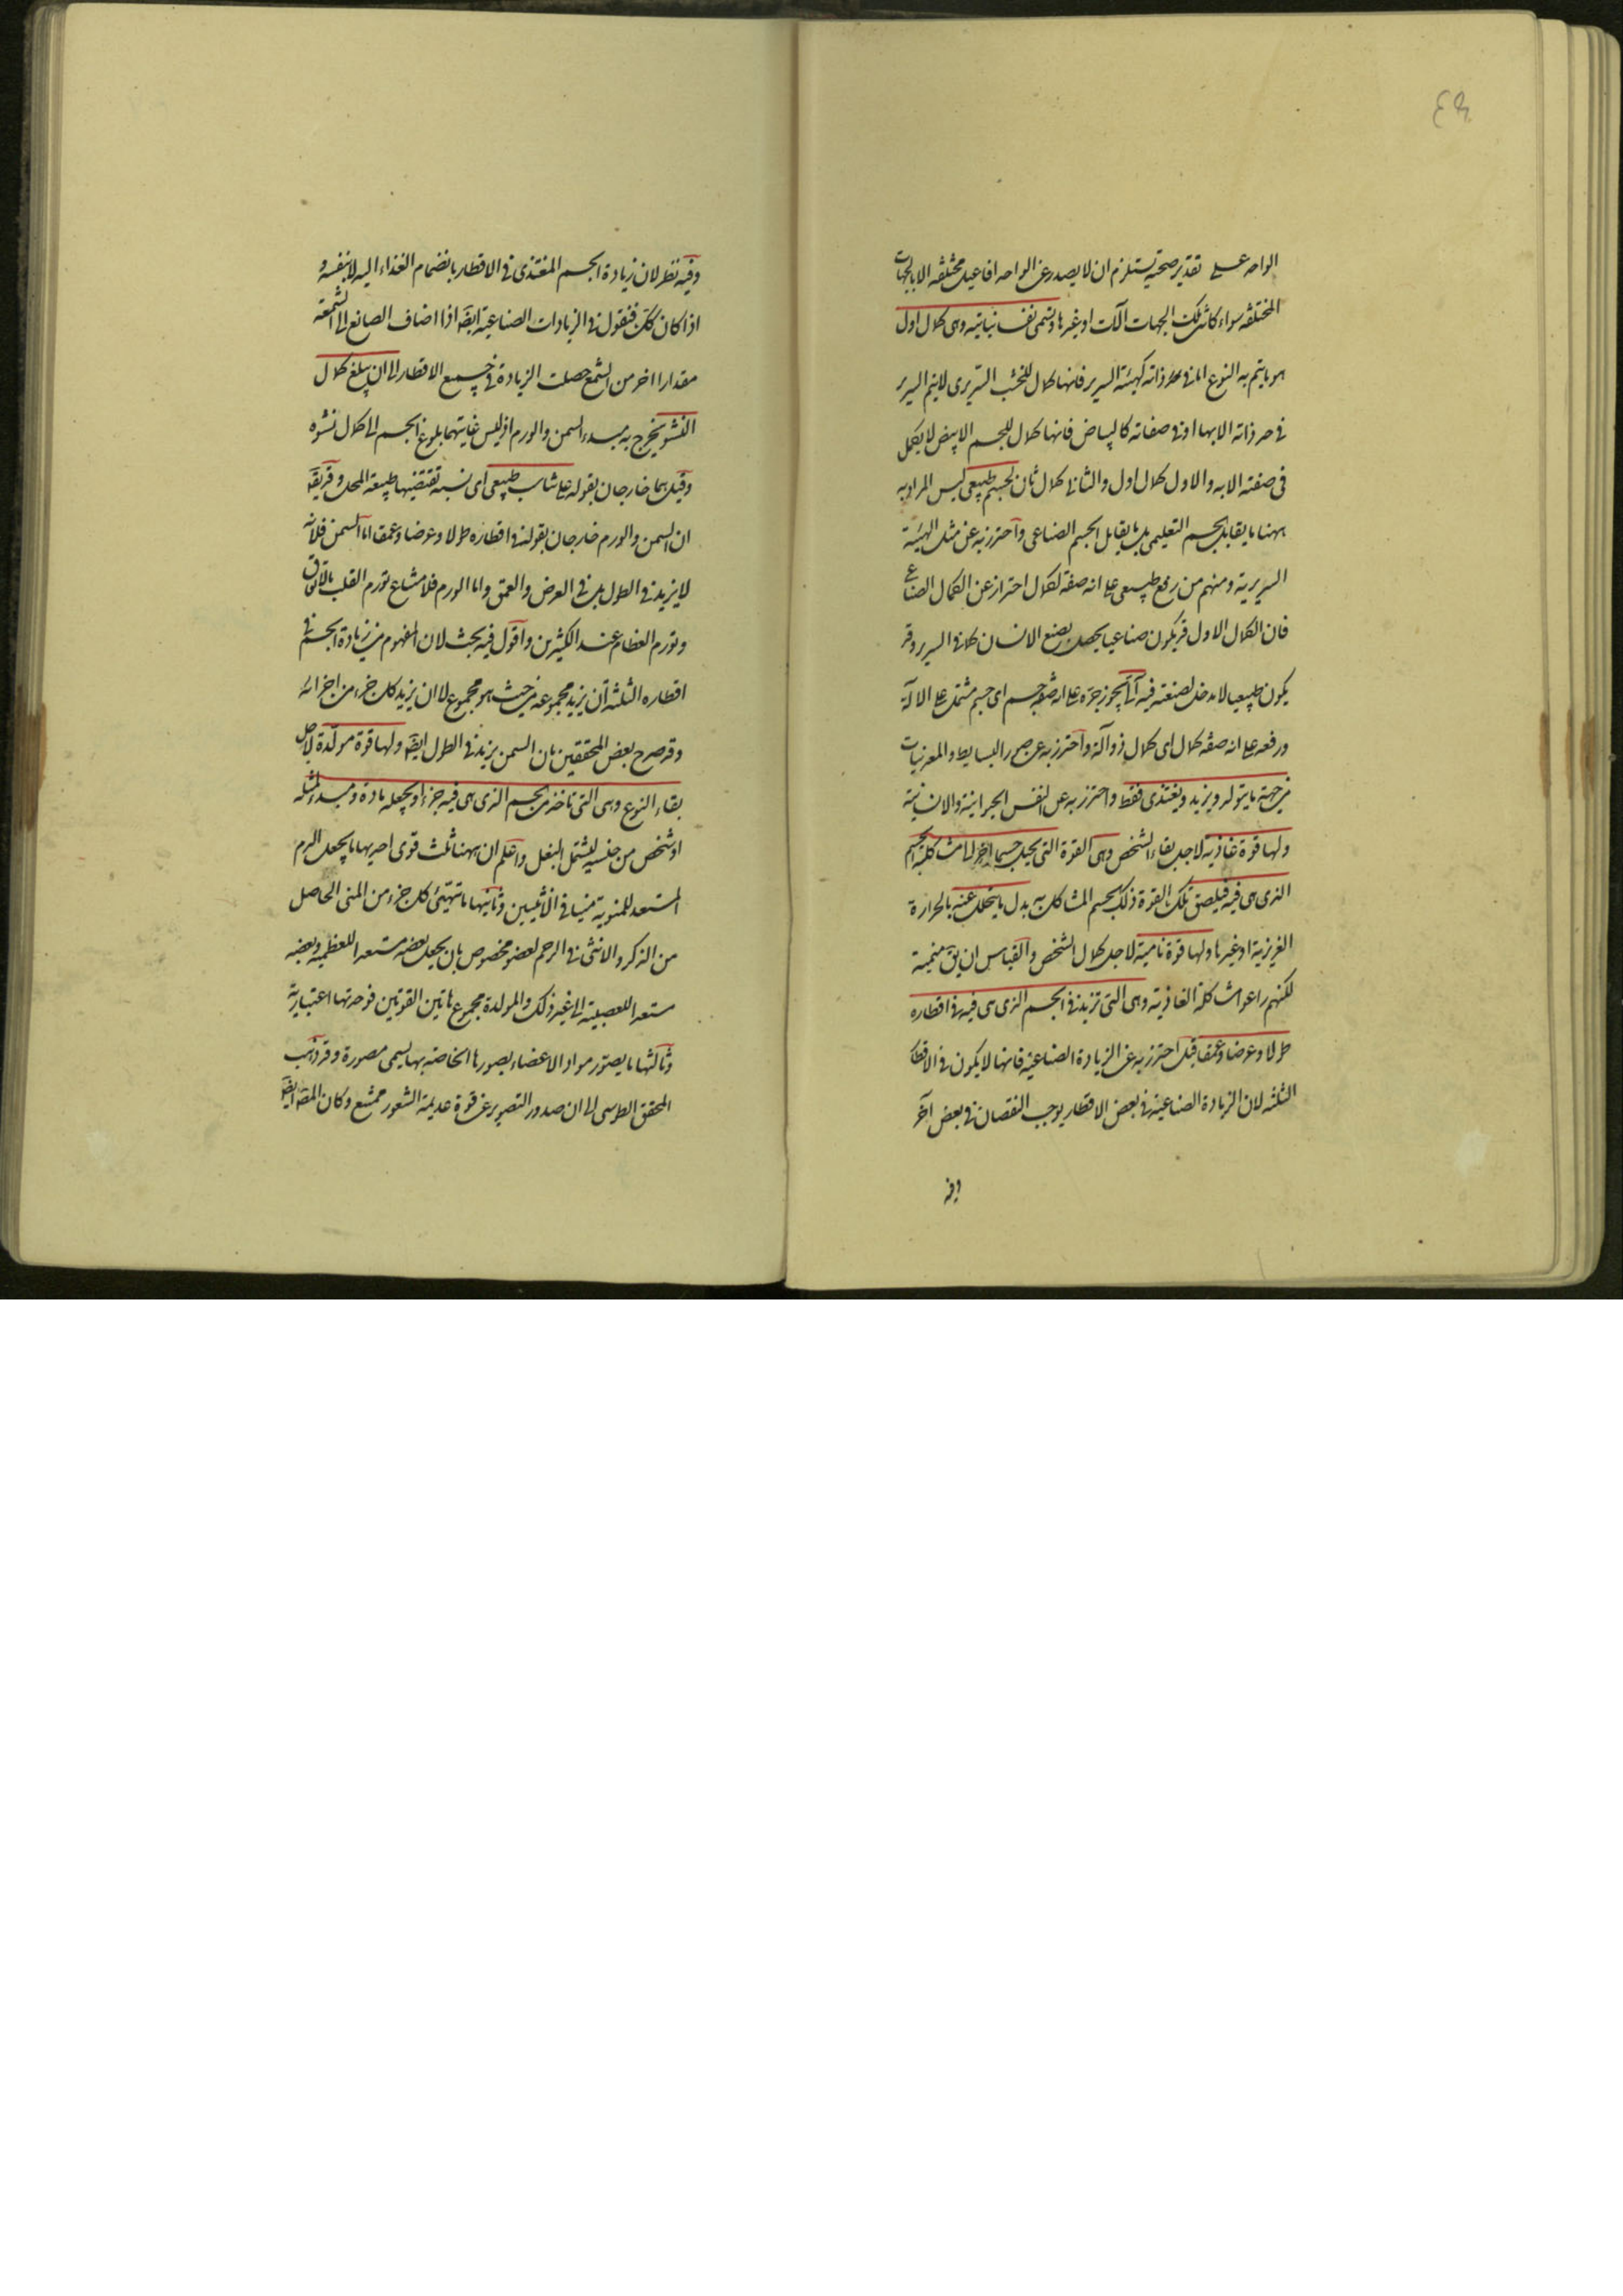 ٤٩
الواحد على تقدير صحته يستلزم ان لا يصدر عن الواحد افاعيل مختلفة الا بالجهات
المختلفة سواء كانت تلك الجهات آلات او غيرها وتسمى نفسا نباتية وهى كمال اول
هو ما يتم به النوع اما فى حد ذاته كهيئة السرير فانها كمال للخشب السريرى لا يتم السرير
فى حد ذاته الا بها او فى صفاته كالبياض فانها كمال للجسم الابيض لا يكمل
فى صفته الا به والاول كمال اول والثانى كمال ثان لجسم طبيعى ليس المراد به
ههنا ما يقابل الجسم التعليمى بل ما يقابل الجسم الصناعى واحترز به عن مثل الهيئة
السريرية ومنهم من رفع طبيعى على انه صفة لكمال احترازا عن الكمال الصناعى
فان الكمال الاول قد يكون صناعيا يحصل بصنع الانسان كما فى السرير وقد
يكون طبيعيا لا مدخل لصنعته فيه آلى يجوز جره على انه صفة جسم اى جسم مشتمل على الآلة
ورفعه على انه صفة كمال اى كمال ذو آلة واحترز به عن صور البسايط والمعدنيات
من جهة ما يتولد ويزيد ويغتذى فقط واحترز به عن النفس الحيوانية والانسانية
ولها قوة غاذية لاجل بقاء الشخص وهى القوة التى يحيل جسما آخر الى مشاكلة الجسم
الذى هى فيه فيلصق تلك القوة ذلك الجسم المشاكل به بدل ما يتحلل عنه بالحرارة
الغريزية او غيرها ولها قوة نامية لاجل كمال الشخص والقياس ان يق منمية
لكنهم راعوا مشاكلة الغاذية وهى التى تزيد فى الجسم الذى هى فيه فى اقطاره
طولا وعرضا وعمقا قيل احترز به عن الزيادة الصناعية فانها لا يكون فى الاقطار
الثلثة لان الزيادة الصناعية فى بعض الاقطار يوجب النقصان فى بعض آخر
وفيه
وفيه نظر لان زيادة الجسم المغتذى فى الاقطار بانضمام الغذاء اليه لا بنفسه و
اذا كان كك فنقول فى الزيادات الصناعية ايضا اذا اضاف الصانع الى الشمعة
مقدارا آخر من الشمع حصلت الزيادة فى جميع الاقطار الى ان يبلغ كمال
النشو يخرج به مبدء السمن والورم اذ ليس غايتهما بلوغ الجسم الى كمال نشوه
وقيل هما خارجان بقوله على تناسب طبيعى اى نسبة تقتضيها طبيعة المحل وقد يق
ان السمن والورم خارجان بقوله فى اقطاره طولا وعرضا وعمقا اما السمن فلانه
لا يزيد فى الطول بل فى العرض والعمق واما الورم فلامتناع تورم القلب بالاتفاق
وتورم العظام عند الكثيرين واقول فيه بحث لان المفهوم من زيادة الجسم فى
اقطاره الثلثة ان يزيد مجموعه من حيث هو مجموع لا ان يزيد كل جزء من اجزائه
وقد صرح بعض المحققين بان السمن يزيد فى الطول ايضا ولها قوة مولدة لاجل
بقاء النوع وهى التى تاخذ من الجسم الذى هى فيه جزءا ويجعله مادة ومبدء لمثله
او شخص من جنسه ليشمل البغل واعلم ان ههنا ثلث قوى احديها ما يجعل الدم
المستعد للمنوية منيا فى الانثيين وثانيتها ما تهيئ كل جزء من المنى الحاصل
من الذكر والانثى فى الرحم لعضو مخصوص بان يجعل بعضه مستعدا للعظمية وبعضه
مستعدا للعصبية الى غير ذلك والمولدة مجموع هاتين القوتين فوحدتها اعتبارية
وثالثتها ما يصور مواد الاعضاء بصورها الخاصة بها يسمى مصورة وقد ذهب
المحقق الطوسى الى ان صدور التصوير عن قوة عديمة الشعور ممتنع وكان المصه ايضا